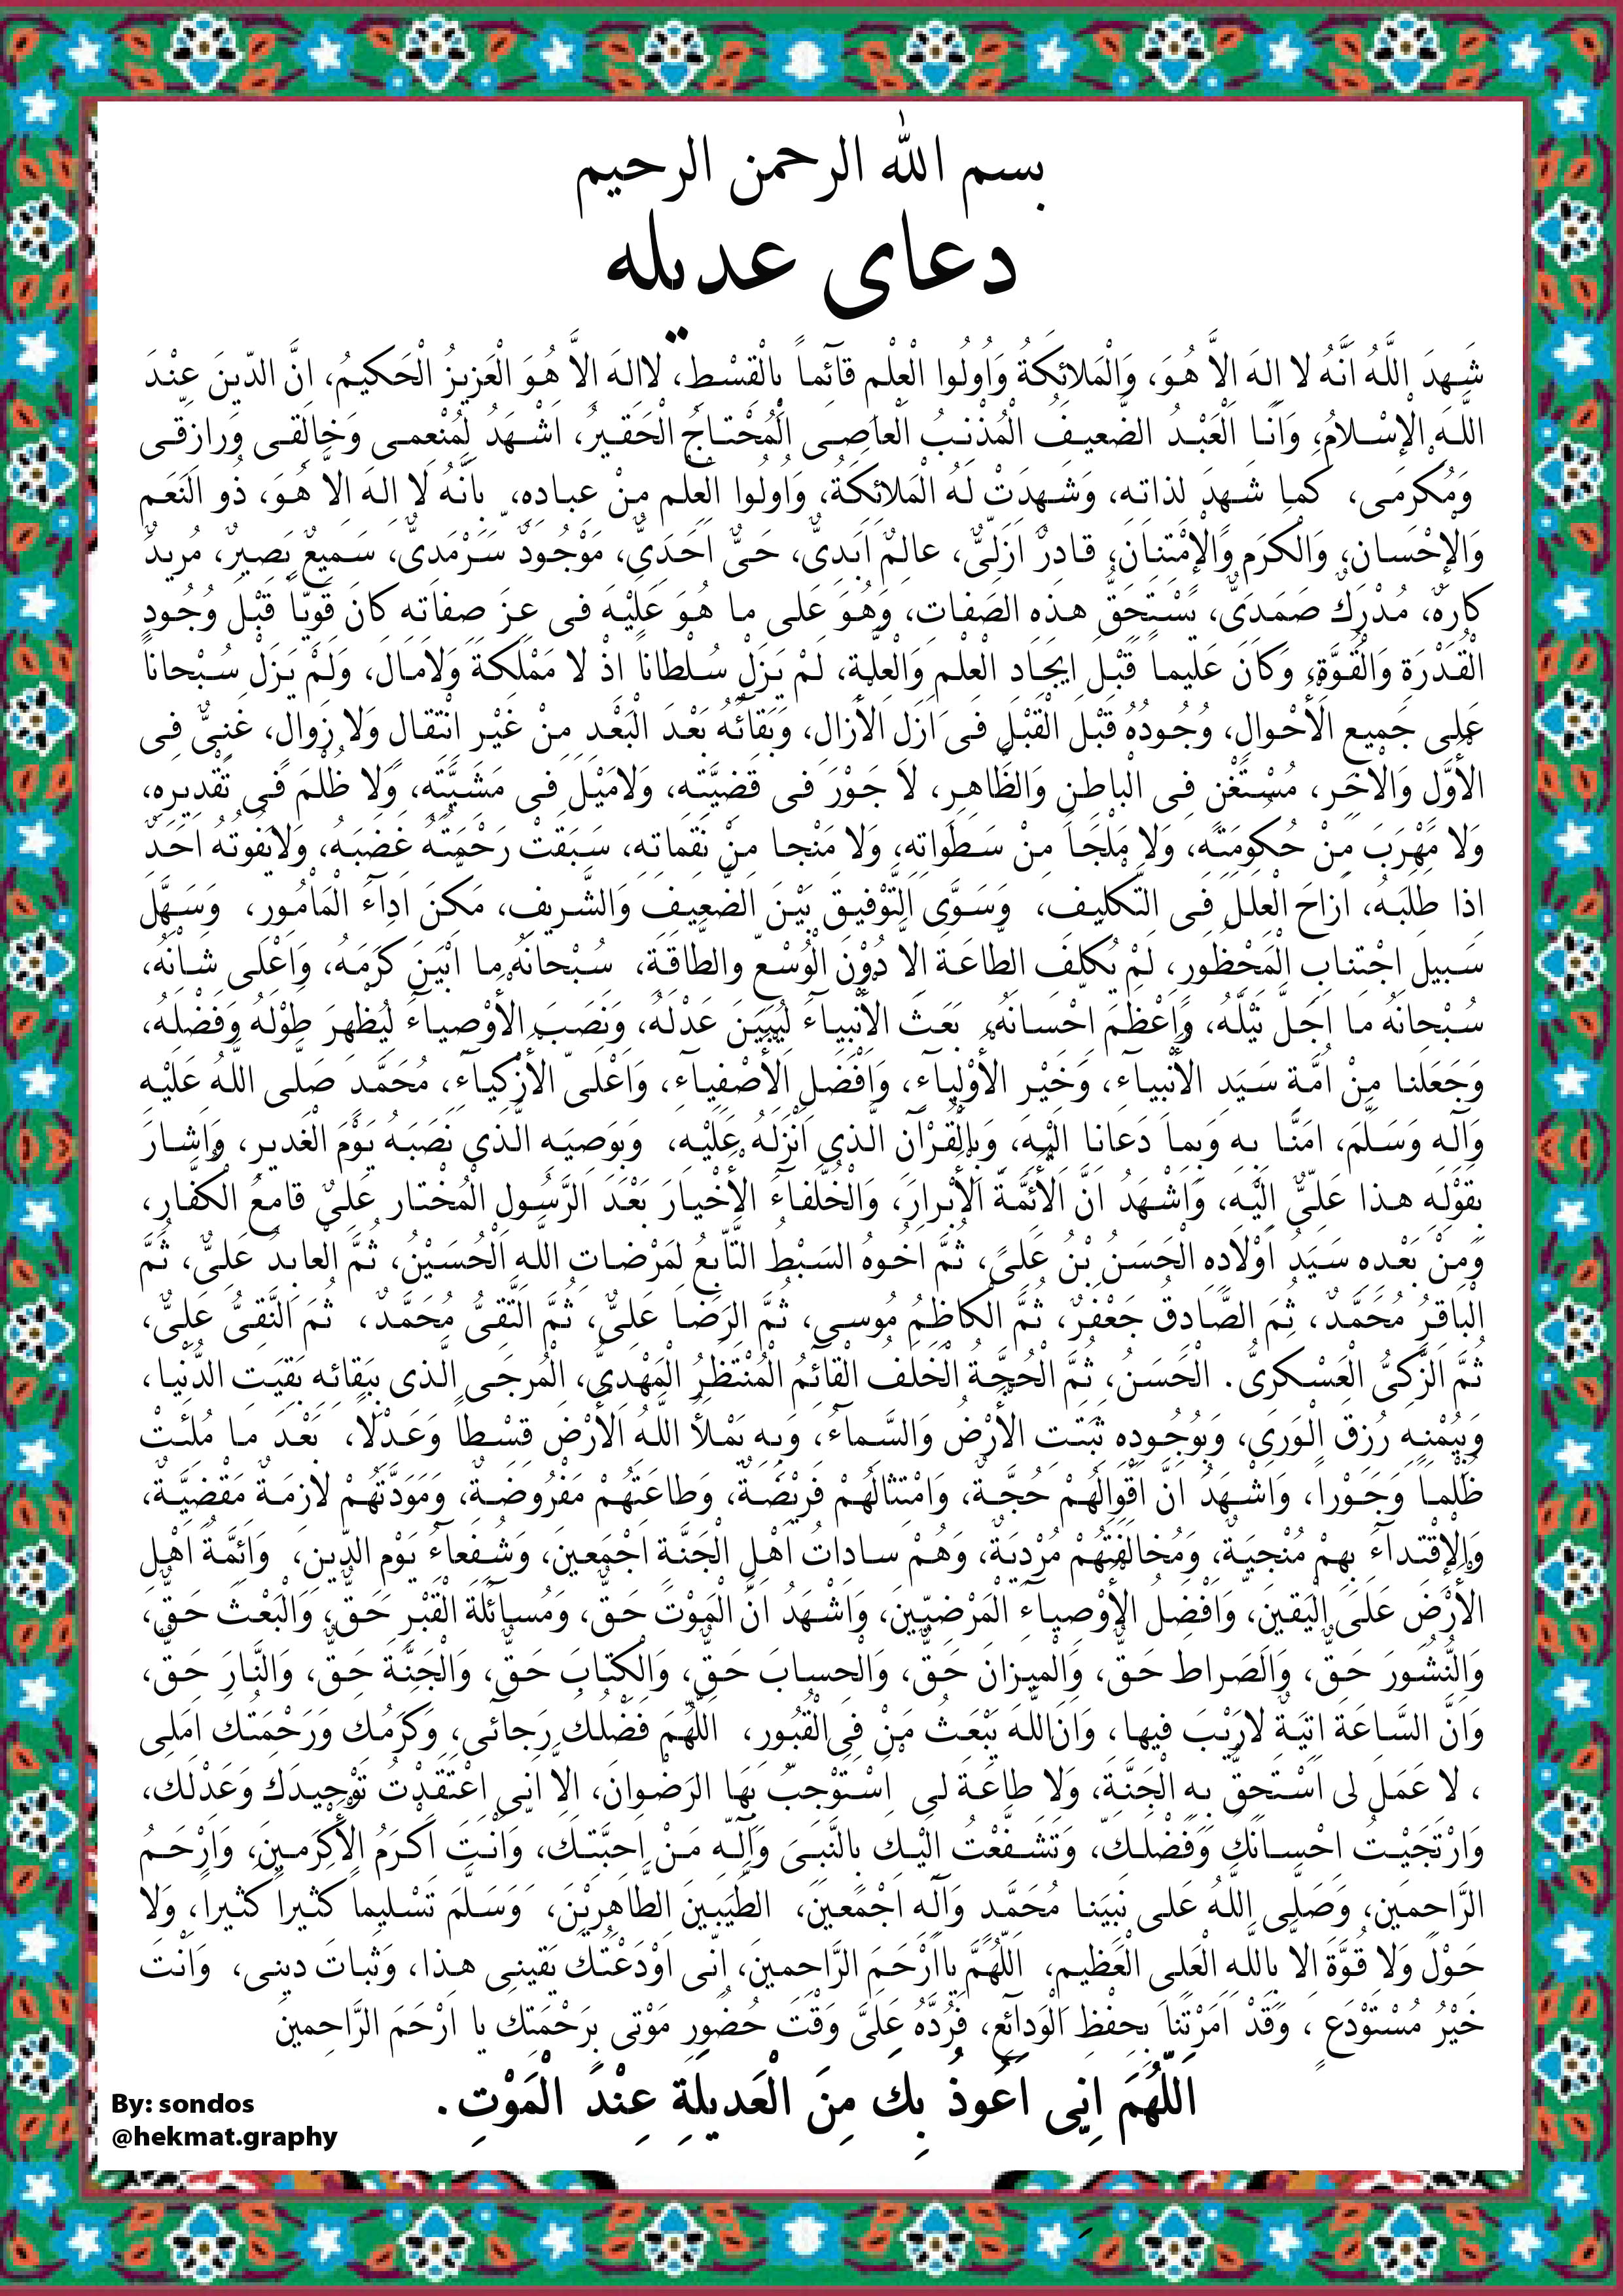 بسم الله الرحمن الرحیم
دعای عدیله
شَهِدَ اللَّهُ اَنَّهُ لا اِلهَ اِلاَّ هُوَ، وَالْمَلائِكَةُ وَاُولُوا الْعِلْمِ قآئِماً بِالْقِسْطِ، لااِلهَ اِلاَّ هُوَ الْعَزيزُ الْحَكيمُ، اِنَّ الدّينَ عِنْدَ
اللَّهِ الْإِسْلامُ، وَاَنَا الْعَبْدُ الضَّعيفُ الْمُذْنِبُ الْعاصِى الْمُحْتاجُ الْحَقيرُ، اَشْهَدُ لِمُنْعِمى وَخالِقى وَرازِقى
وَمُكْرِمى، كَما شَهِدَ لِذاتِهِ، وَشَهِدَتْ لَهُ الْمَلائِكَةُ، وَاُولُوا الْعِلْمِ مِنْ عِبادِهِ، بِاَنَّهُ لَا اِلهَ اِلاَّ هُوَ، ذُو النِّعَمِ
وَالْإِحْسانِ، وَالْكَرَمِ وَالْإِمْتِنانِ، قادِرٌ اَزَلِىٌّ، عالِمٌ اَبَدِىٌّ، حَىٌّ اَحَدِىٌّ، مَوْجُودٌ سَرْمَدِىٌّ، سَميعٌ بَصيرٌ، مُريدٌ
كارِهٌ، مُدْرِكٌ صَمَدِىٌّ، يَسْتَحِقُّ هذِهِ الصِّفاتِ، وَهُوَ عَلى ما هُوَ عَلَيْهِ فى عِزِّ صِفاتِهِ كانَ قَوِيّاً قَبْلَ وُجُودِ
الْقُدْرَةِ وَالْقُوَّةِ، وَكانَ عَليماً قَبْلَ ايجادِ الْعِلْمِ وَالْعِلَّةِ، لَمْ يَزَلْ سُلْطاناً اِذْ لا مَمْلَكَةَ وَلامالَ، وَلَمْ يَزَلْ سُبْحاناً
عَلى جَميعِ الْأَحْوالِ، وُجُودُهُ قَبْلَ الْقَبْلِ فى اَزَلِ الْأزالِ، وَبَقآئُهُ بَعْدَ الْبَعْدِ مِنْ غَيْرِ انْتِقالٍ وَلا زَوالٍ، غَنِىٌّ فِى
الْأَوَّلِ وَالْاخِرِ، مُسْتَغْنٍ فِى الْباطِنِ وَالظَّاهِرِ، لا جَوْرَ فى قَضِيَّتِهِ، وَلامَيْلَ فى مَشِيَّتِهِ، وَلا ظُلْمَ فى تَقْديرِهِ،
وَلا مَهْرَبَ مِنْ حُكُومَتِهِ، وَلا مَلْجَاَ مِنْ سَطَواتِهِ، وَلا مَنْجا مِنْ نَقِماتِهِ، سَبَقَتْ رَحْمَتُهُ غَضَبَهُ، وَلايَفُوتُهُ اَحَدٌ
اِذا طَلَبَهُ، اَزاحَ الْعِلَلَ فِى التَّكْليفِ، وَسَوَّى التَّوْفيقَ بَيْنَ الضَّعيفِ وَالشَّريفِ، مَكَّنَ اَدآءَ الْمَاْمُورِ، وَسَهَّلَ
سَبيلَ اجْتِنابِ الْمَحْظُورِ، لَمْ يُكَلِّفِ الطَّاعَةَ اِلاَّ دُوْنَ الْوُسْعِ والطَّاقَةِ، سُبْحانَهُ ما اَبْيَنَ كَرَمَهُ، وَاَعْلى شَاْنَهُ،
سُبْحانَهُ ما اَجَلَّ نَيْلَهُ، وَاَعْظَمَ اِحْسانَهُ، بَعَثَ الْأَنْبِيآءَ لِيُبَيِّنَ عَدْلَهُ، وَنَصَبَ الْأَوْصِيآءَ لِيُظْهِرَ طَوْلَهُ وَفَضْلَهُ،
وَجَعَلَنا مِنْ اُمَّةِ سَيِّدِ الْأَنْبِيآءِ، وَخَيْرِ الْأَوْلِيآءِ، وَاَفْضَلِ الْأَصْفِيآءِ، وَاَعْلَى الْأَزْكِيآءِ، مُحَمَّدٍ صَلَّى اللَّهُ عَلَيْهِ
وَآلِهِ وَسَلَّمَ، امَنَّا بِهِ وَبِما دَعانا اِلَيْهِ، وَبِالْقُرْآنِ الَّذى اَنْزَلَهُ عَلَيْهِ، وَبِوَصِيِّهِ الَّذى نَصَبَهُ يَوْمَ الْغَديرِ، وَاَشارَ
بِقَوْلِهِ هذا عَلِىٌّ اِلَيْهِ، وَاَشْهَدُ اَنَّ الْأَئِمَّةَ الْأَبْرارَ، وَالْخُلَفآءَ الْأَخْيارَ بَعْدَ الرَّسُولِ الْمُخْتارِ عَلِىٌّ قامِعُ الْكُفَّارِ،
وَمِنْ بَعْدِهِ سَيِّدُ اَوْلادِهِ الْحَسَنُ بْنُ عَلِىٍّ، ثُمَّ اَخُوهُ السِّبْطُ التَّابِعُ لِمَرْضاتِ اللهِ الْحُسَيْنُ، ثُمَّ الْعابِدُ عَلِىٌّ، ثُمَّ
الْباقِرُ مُحَمَّدٌ، ثُمَّ الصَّادِقُ جَعْفَرٌ، ثُمَّ الْكاظِمُ مُوسى، ثُمَّ الرِّضا عَلِىٌّ، ثُمَّ التَّقِىُّ مُحَمَّدٌ، ثُمَّ النَّقِىُّ عَلِىٌّ،
ثُمَّ الزَّكِىُّ الْعَسْكَرِىُّ. الْحَسَنُ، ثُمَّ الْحُجَّةُ الْخَلَفُ الْقآئِمُ الْمُنْتَظَرُ الْمَهْدِىُّ، الْمُرجَى الَّذى بِبَقائِهِ بَقِيَتِ الدُّنْيا،
وَبِيُمْنِهِ رُزِقَ الْوَرى، وَبِوُجُودِهِ ثَبَتَتِ الْأَرْضُ وَالسَّمآءُ، وَبِهِ يَمْلَأُ اللهُ الْأَرْضَ قِسْطاً وَعَدْلًا، بَعْدَ ما مُلِئَتْ
ظُلْماً وَجَوْراً، وَاَشْهَدُ اَنَّ اَقْوالَهُمْ حُجَّةٌ، وَامْتِثالَهُمْ فَريضَةٌ، وَطاعَتَهُمْ مَفْرُوضَةٌ، وَمَوَدَّتَهُمْ لازِمَةٌ مَقْضِيَّةٌ،
وَالْإِقْتِدآءَ بِهِمْ مُنْجِيَةٌ، وَمُخالَفَتَهُمْ مُرْدِيَةٌ، وَهُمْ ساداتُ اَهْلِ الْجَنَّةِ اَجْمَعينَ، وَشُفَعآءُ يَوْمِ الدّينِ، وَاَئِمَّةُ اَهْلِ
الْأَرْضِ عَلَى الْيَقينِ، وَاَفْضَلُ الْأَوْصِيآءِ الْمَرْضِيّينَ، وَاَشْهَدُ اَنَّ الْمَوْتَ حَقٌّ، وَمُسآئَلَةَ الْقَبْرِ حَقٌّ، وَالْبَعْثَ حَقٌّ،
وَالنُّشُورَ حَقٌّ، وَالصِّراطَ حَقٌّ، وَالْميزانَ حَقٌّ، وَالْحِسابَ حَقٌّ، وَالْكِتابَ حَقٌّ، وَالْجَنَّةَ حَقٌّ، وَالنَّارَ حَقٌّ،
وَاَنَّ السَّاعَةَ اتِيَةٌ لارَيْبَ فيها، وَاَنَّ اللهَ يَبْعَثُ مَنْ فِى الْقُبُورِ، اَللّهُمَّ فَضْلُكَ رَجآئى، وَكَرَمُكَ وَرَحْمَتُكَ اَمَلى
، لا عَمَلَ لى اَسْتَحِقُّ بِهِ الْجَنَّةَ، وَلا طاعَةَ لى اَسْتَوْجِبُ بِهَا الرِّضْوانَ، اِلاَّ اَنِّى اعْتَقَدْتُ تَوْحيدَكَ وَعَدْلَكَ،
وَارْتَجَيْتُ اِحْسانَكَ وَفَضْلَكَ، وَتَشَفَّعْتُ اِلَيْكَ بِالنَّبِىِّ وَآلِهِ مَنْ اَحِبَّتِكَ، وَاَنْتَ اَكْرَمُ الْأَكْرَمينَ، وَاَرْحَمُ
الرَّاحِمينَ، وَصَلَّى اللهُ عَلى نَبِيِّنا مُحَمَّدٍ وَآلِهِ اَجْمَعينَ، الطَّيِّبينَ الطَّاهِرِيْنَ، وَسَلَّمَ تَسْليماً كَثيراً كَثيراً، وَلا
حَوْلَ وَلا قُوَّةَ اِلاَّ بِاللهِ الْعَلِى الْعَظيمِ، اَللّهُمَّ يااَرْحَمَ الرَّاحِمينَ، اِنّى اَوْدَعْتُكَ يَقينى هذا، وَثَباتَ دينى، وَاَنْتَ
خَيْرُ مُسْتَوْدَعٍ ، وَقَدْ اَمَرْتَنا بِحِفْظِ الْوَدآئِعِ، فَرُدَّهُ عَلَىَّ وَقْتَ حُضُورِ مَوْتى بِرَحْمَتِكَ يا اَرْحَمَ الرَّاحِمينَ
اَللّهُمَّ اِنّى اَعوذُ بِك مِنَ الْعَديلَةِ عِنْدَ الْمَوْتِ.
By: sondos
@hekmat.graphy